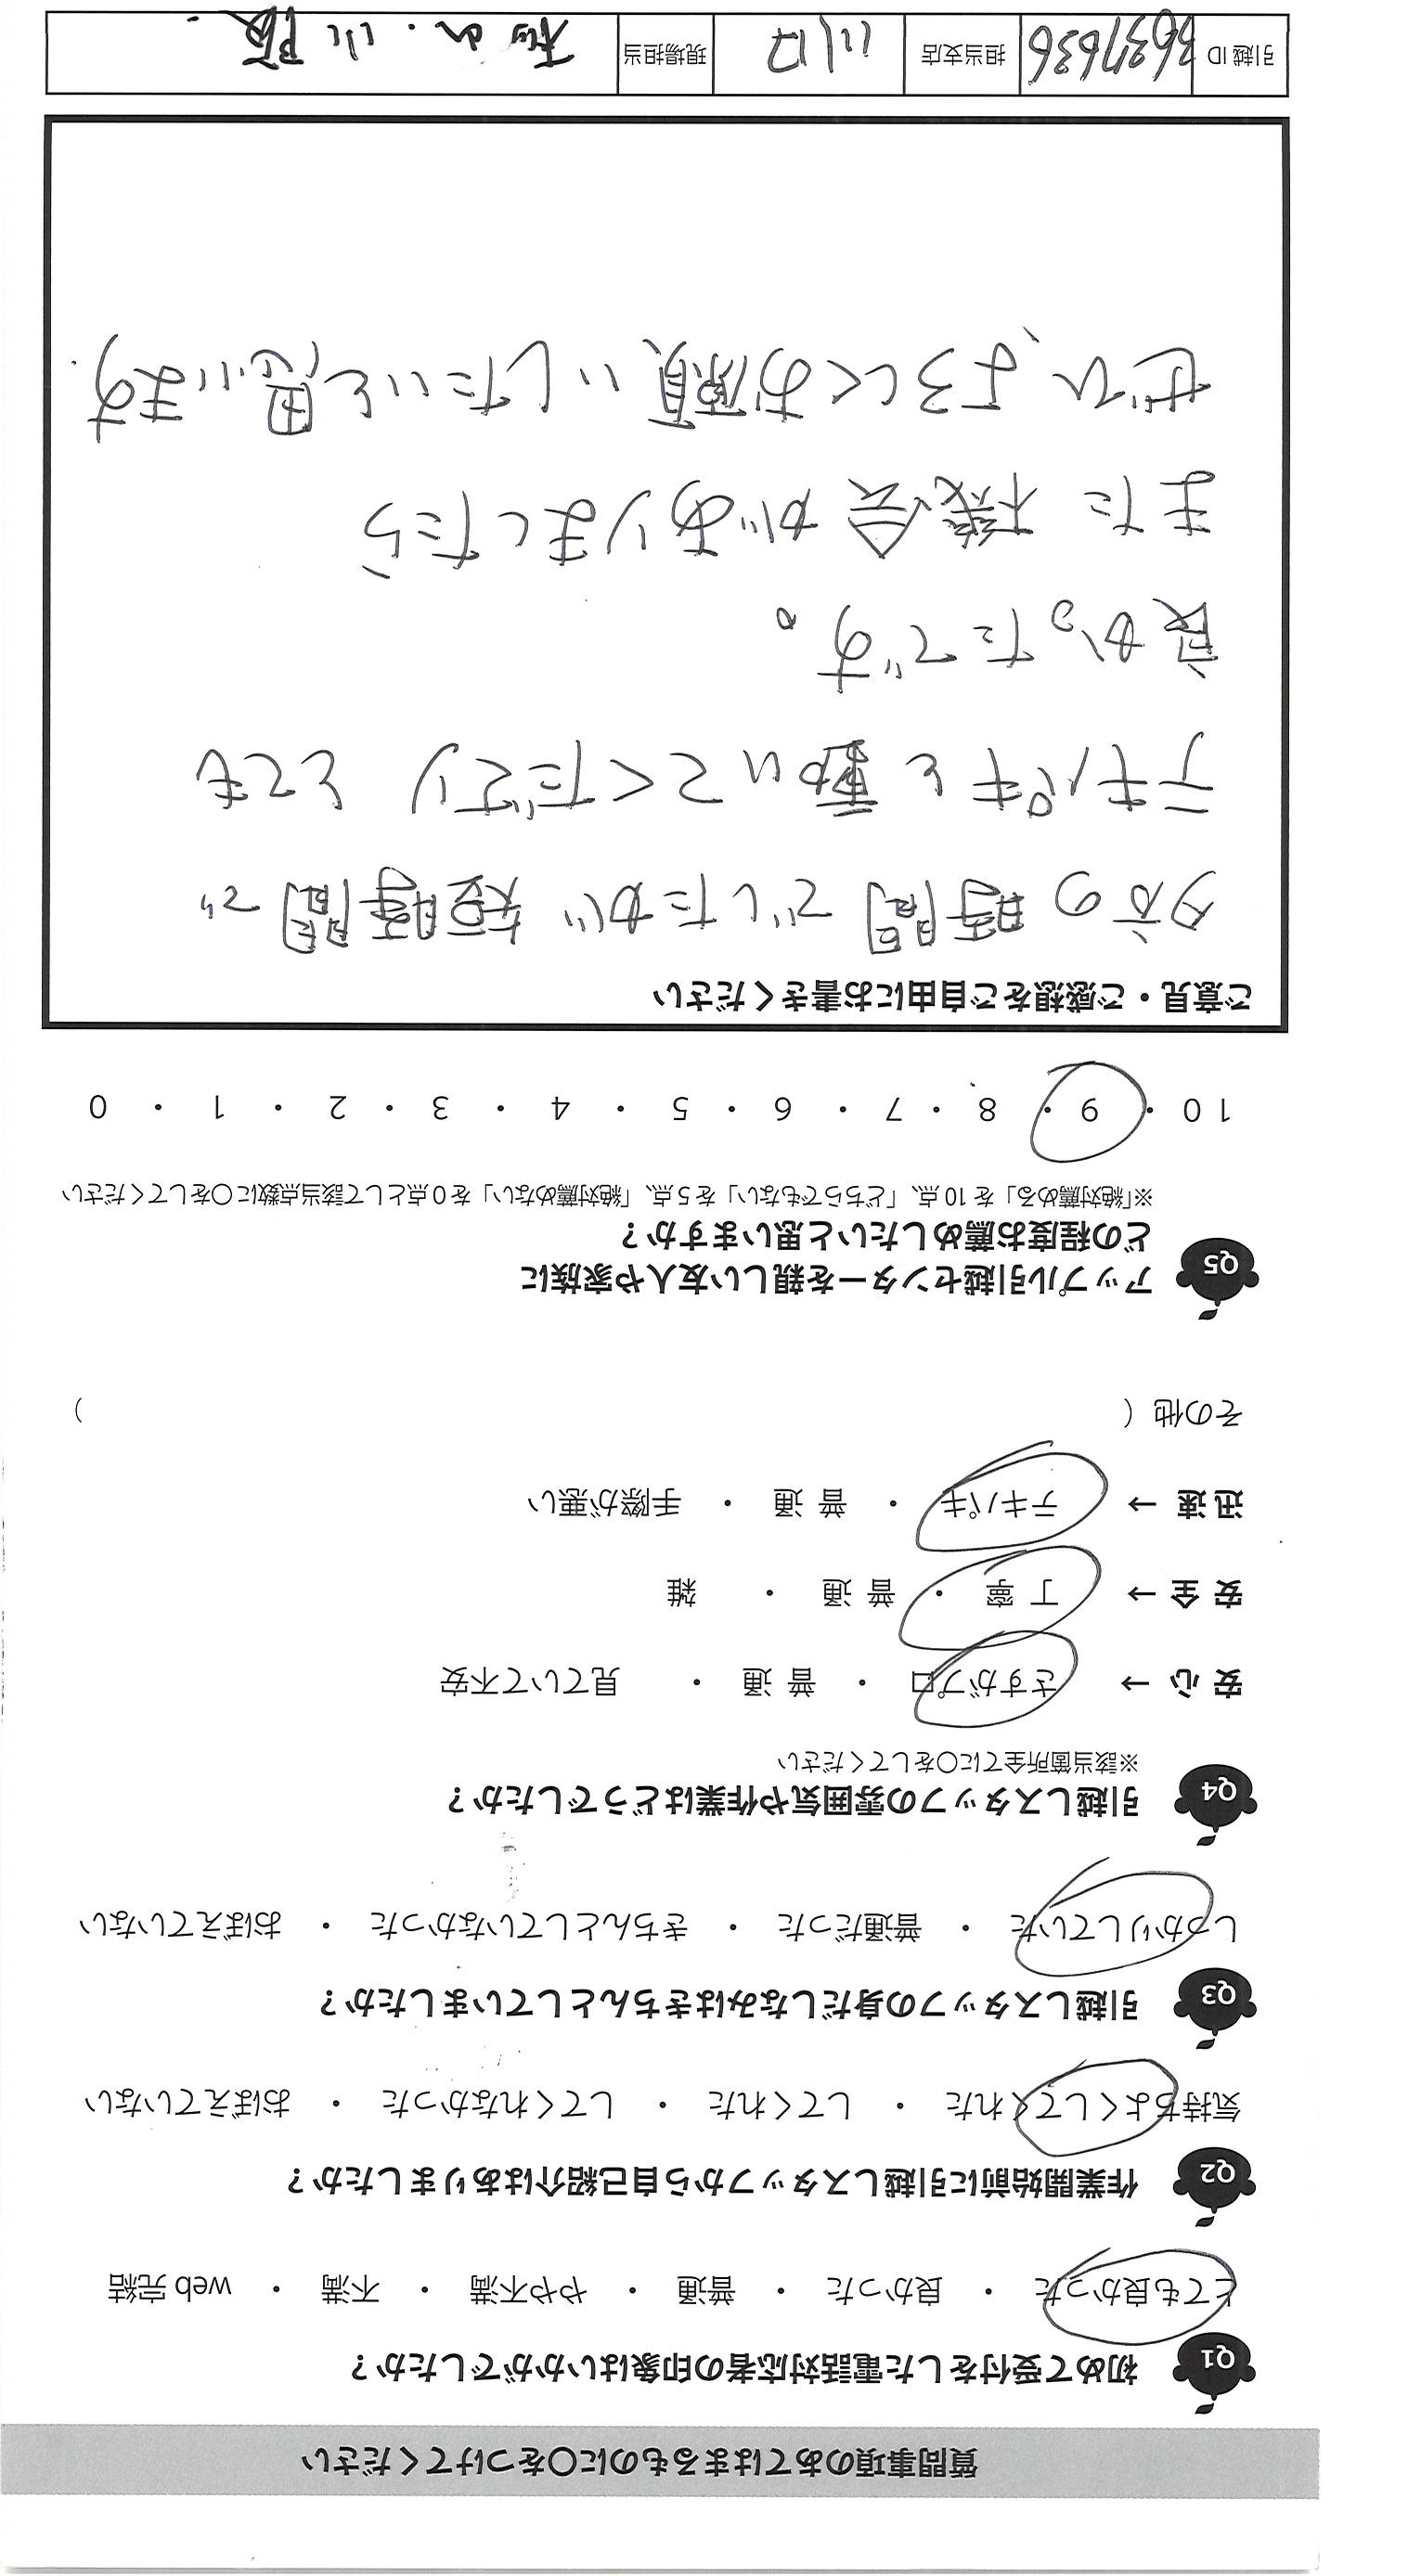 質問事項のあてはまるものに○をつけてください
Q1 初めて受付をした電話対応者の印象はいかがでしたか？
とても良かった ・ 良かった ・ 普通 ・ やや不満 ・ 不満 ・ web 完結
Q2 作業開始前に引越しスタッフから自己紹介はありましたか？
気持ちよくしてくれた ・ してくれた ・ してくれなかった ・ おぼえていない
Q3 引越しスタッフの身だしなみはきちんとしていましたか？
しっかりしていた ・ 普通だった ・ きちんとしていなかった ・ おぼえていない
Q4 引越しスタッフの雰囲気や作業はどうでしたか？
※該当箇所全てに○をしてください
安 心 → さすがプロ ・ 普 通 ・ 見ていて不安
安 全 → 丁 寧 ・ 普 通 ・ 雑
迅 速 → テキパキ ・ 普 通 ・ 手際が悪い
その他 ( )
Q5 アップル引越センターを親しい友人や家族に
どの程度お薦めしたいと思いますか？
※「絶対薦める」を 10 点、「どちらでもない」を 5 点、「絶対薦めない」を 0 点として該当点数に○をしてください
10 ・ 9 ・ 8 ・ 7 ・ 6 ・ 5 ・ 4 ・ 3 ・ 2 ・ 1 ・ 0
ご意見・ご感想をご自由にお書きください
夕方の時間でしたが短時間で
テキパキと動いてくださり とても
良かったです。
また機会がありましたら
ぜひ、よろしくお願いしたいと思います.
引越 ID 3637636 担当支店 川口 現場担当